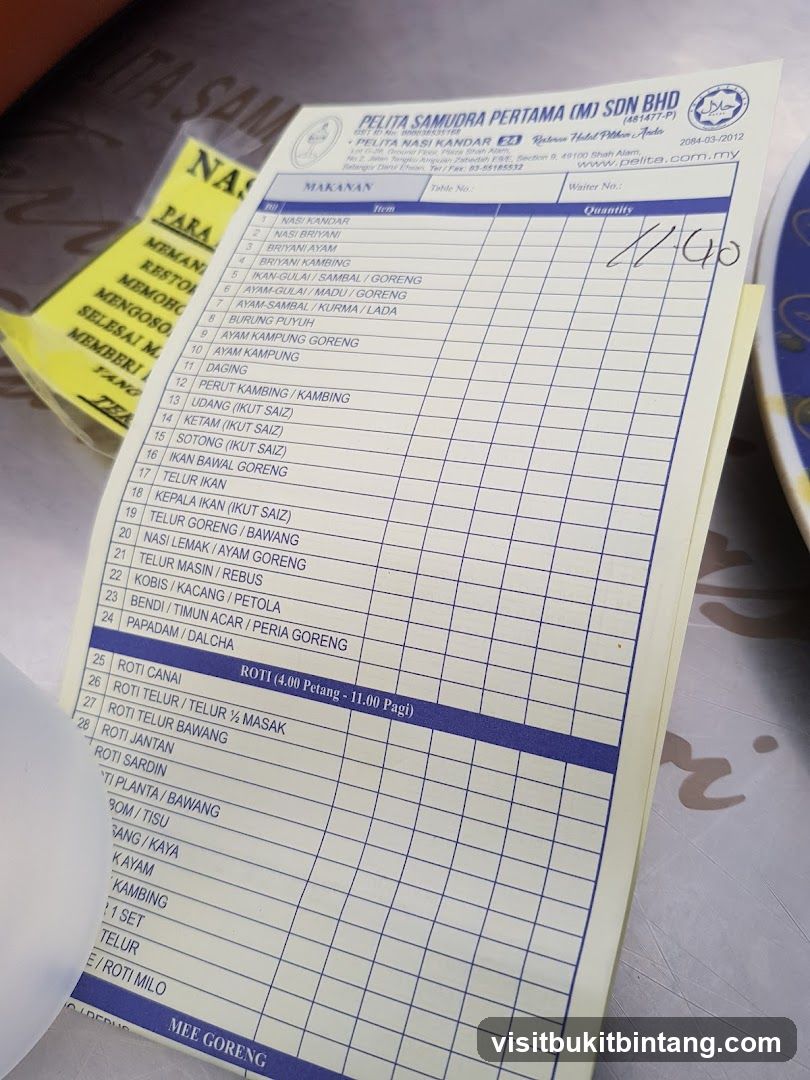 PELITA SAMUDRA PERTAMA (M) SDN BHD
(481477-P)
GST ID No: 000036535168
• PELITA NASI KANDAR 24 Restoran Halal Pilihan Anda
Lot G-29, Ground Floor, Plaza Shah Alam,
No 2, Jalan Tengku Ampuan Zabedah E9/E, Section 9, 49100 Shah Alam,
Selangor Darul Ehsan, Tel / Fax: 03-55185532
2084-03-/2012
www.pelita.com.my
MAKANAN Table No.: Waiter No.:
Bil Item Quantity
11.40
1 NASI KANDAR
2 NASI BRIYANI
3 BRIYANI AYAM
4 BRIYANI KAMBING
5 IKAN-GULAI / SAMBAL / GORENG
6 AYAM-GULAI / MADU / GORENG
7 AYAM-SAMBAL / KURMA / LADA
8 BURUNG PUYUH
9 AYAM KAMPUNG GORENG
10 AYAM KAMPUNG
11 DAGING
12 PERUT KAMBING / KAMBING
13 UDANG (IKUT SAIZ)
14 KETAM (IKUT SAIZ)
15 SOTONG (IKUT SAIZ)
16 IKAN BAWAL GORENG
17 TELUR IKAN
18 KEPALA IKAN (IKUT SAIZ)
19 TELUR GORENG / BAWANG
20 NASI LEMAK / AYAM GORENG
21 TELUR MASIN / REBUS
22 KOBIS / KACANG / PETOLA
23 BENDI / TIMUN ACAR / PERIA GORENG
24 PAPADAM / DALCHA
ROTI (4.00 Petang - 11.00 Pagi)
25 ROTI CANAI
26 ROTI TELUR / TELUR ½ MASAK
27 ROTI TELUR BAWANG
28 ROTI JANTAN
ROTI SARDIN
TI PLANTA / BAWANG
BOM / TISU
SANG / KAYA
K AYAM
KAMBING
1 SET
TELUR
E / ROTI MILO
MEE GORENG
NAS
PARA
MEMAN
RESTO
MEMOHO
MENGOSO
SELESAI MA
MEMBERI
YANG
TER
PELITA SAM
visitbukitbintang.com